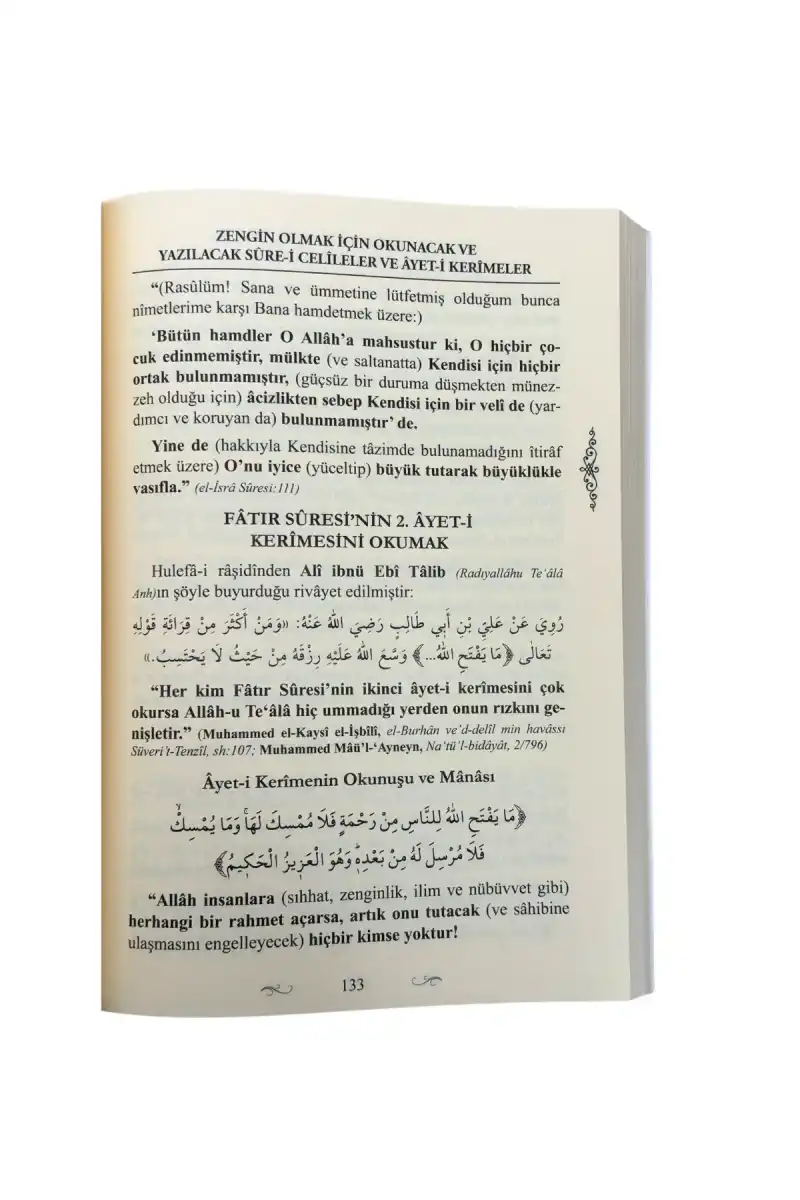 ZENGİN OLMAK İÇİN OKUNACAK VE
YAZILACAK SÛRE-İ CELÎLELER VE ÂYET-İ KERÎMELER
“(Rasûlüm! Sana ve ümmetine lütfetmiş olduğum bunca
nîmetlerime karşı Bana hamdetmek üzere:)
‘Bütün hamdler O Allâh’a mahsustur ki, O hiçbir ço-
cuk edinmemiştir, mülkte (ve saltanatta) Kendisi için hiçbir
ortak bulunmamıştır, (güçsüz bir duruma düşmekten münez-
zeh olduğu için) âcizlikten sebep Kendisi için bir velî de (yar-
dımcı ve koruyan da) bulunmamıştır’ de.
Yine de (hakkıyla Kendisine tâzimde bulunamadığını îtirâf
etmek üzere) O’nu iyice (yüceltip) büyük tutarak büyüklükle
vasıfla.” (el-İsrâ Sûresi:111)
FÂTIR SÛRESİ’NİN 2. ÂYET-İ
KERÎMESİNİ OKUMAK
Hulefâ-i râşidînden Alî ibnü Ebî Tâlib (Radıyallâhu Te‘âlâ
Anh)ın şöyle buyurduğu rivâyet edilmiştir:
رُوِيَ عَنْ عَلِيِّ بْنِ أَبِي طَالِبٍ رَضِيَ اللهُ عَنْهُ: «وَمَنْ أَكْثَرَ مِنْ قِرَائَةِ قَوْلِهِ
تَعَالٰى ﴿مَا يَفْتَحِ اللّٰهُ...﴾ وَسَّعَ اللهُ عَلَيْهِ رِزْقَهُ مِنْ حَيْثُ لَا يَحْتَسِبُ.»
“Her kim Fâtır Sûresi’nin ikinci âyet-i kerîmesini çok
okursa Allâh-u Te‘âlâ hiç ummadığı yerden onun rızkını ge-
nişletir.” (Muhammed el-Kaysî el-İşbîlî, el-Burhân ve’d-delîl min havâssı
Süveri’t-Tenzîl, sh:107; Muhammed Mâü’l-‘Ayneyn, Na‘tü’l-bidâyât, 2/796)
Âyet-i Kerîmenin Okunuşu ve Mânâsı
﴿مَا يَفْتَحِ اللّٰهُ لِلنَّاسِ مِنْ رَحْمَةٍ فَلَا مُمْسِكَ لَهَاۚ وَمَا يُمْسِكْۙ
فَلَا مُرْسِلَ لَهُ مِنْ بَعْدِهٖۜ وَهُوَ الْعَزٖيزُ الْحَكٖيمُ﴾
“Allâh insanlara (sıhhat, zenginlik, ilim ve nübüvvet gibi)
herhangi bir rahmet açarsa, artık onu tutacak (ve sâhibine
ulaşmasını engelleyecek) hiçbir kimse yoktur!
133